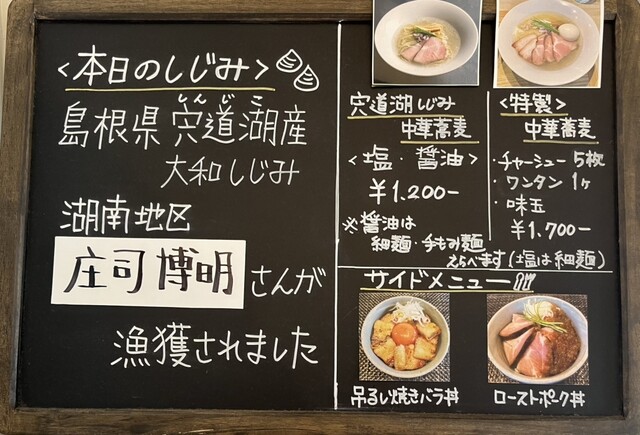 <本日のしじみ>
しんじこ
島根県 宍道湖産
大和しじみ
湖南地区
庄司 博明 さんが
漁獲されました
宍道湖しじみ
中華蕎麦
<塩・醤油>
¥1.200-
※醤油は
細麺・手もみ麺
えらべます(塩は細麺)
<特製>
中華蕎麦
・チャーシュー 5枚
・ワンタン 1ヶ
・味玉
¥1.700-
サイドメニュー
吊るし焼きバラ丼
ローストポーク丼